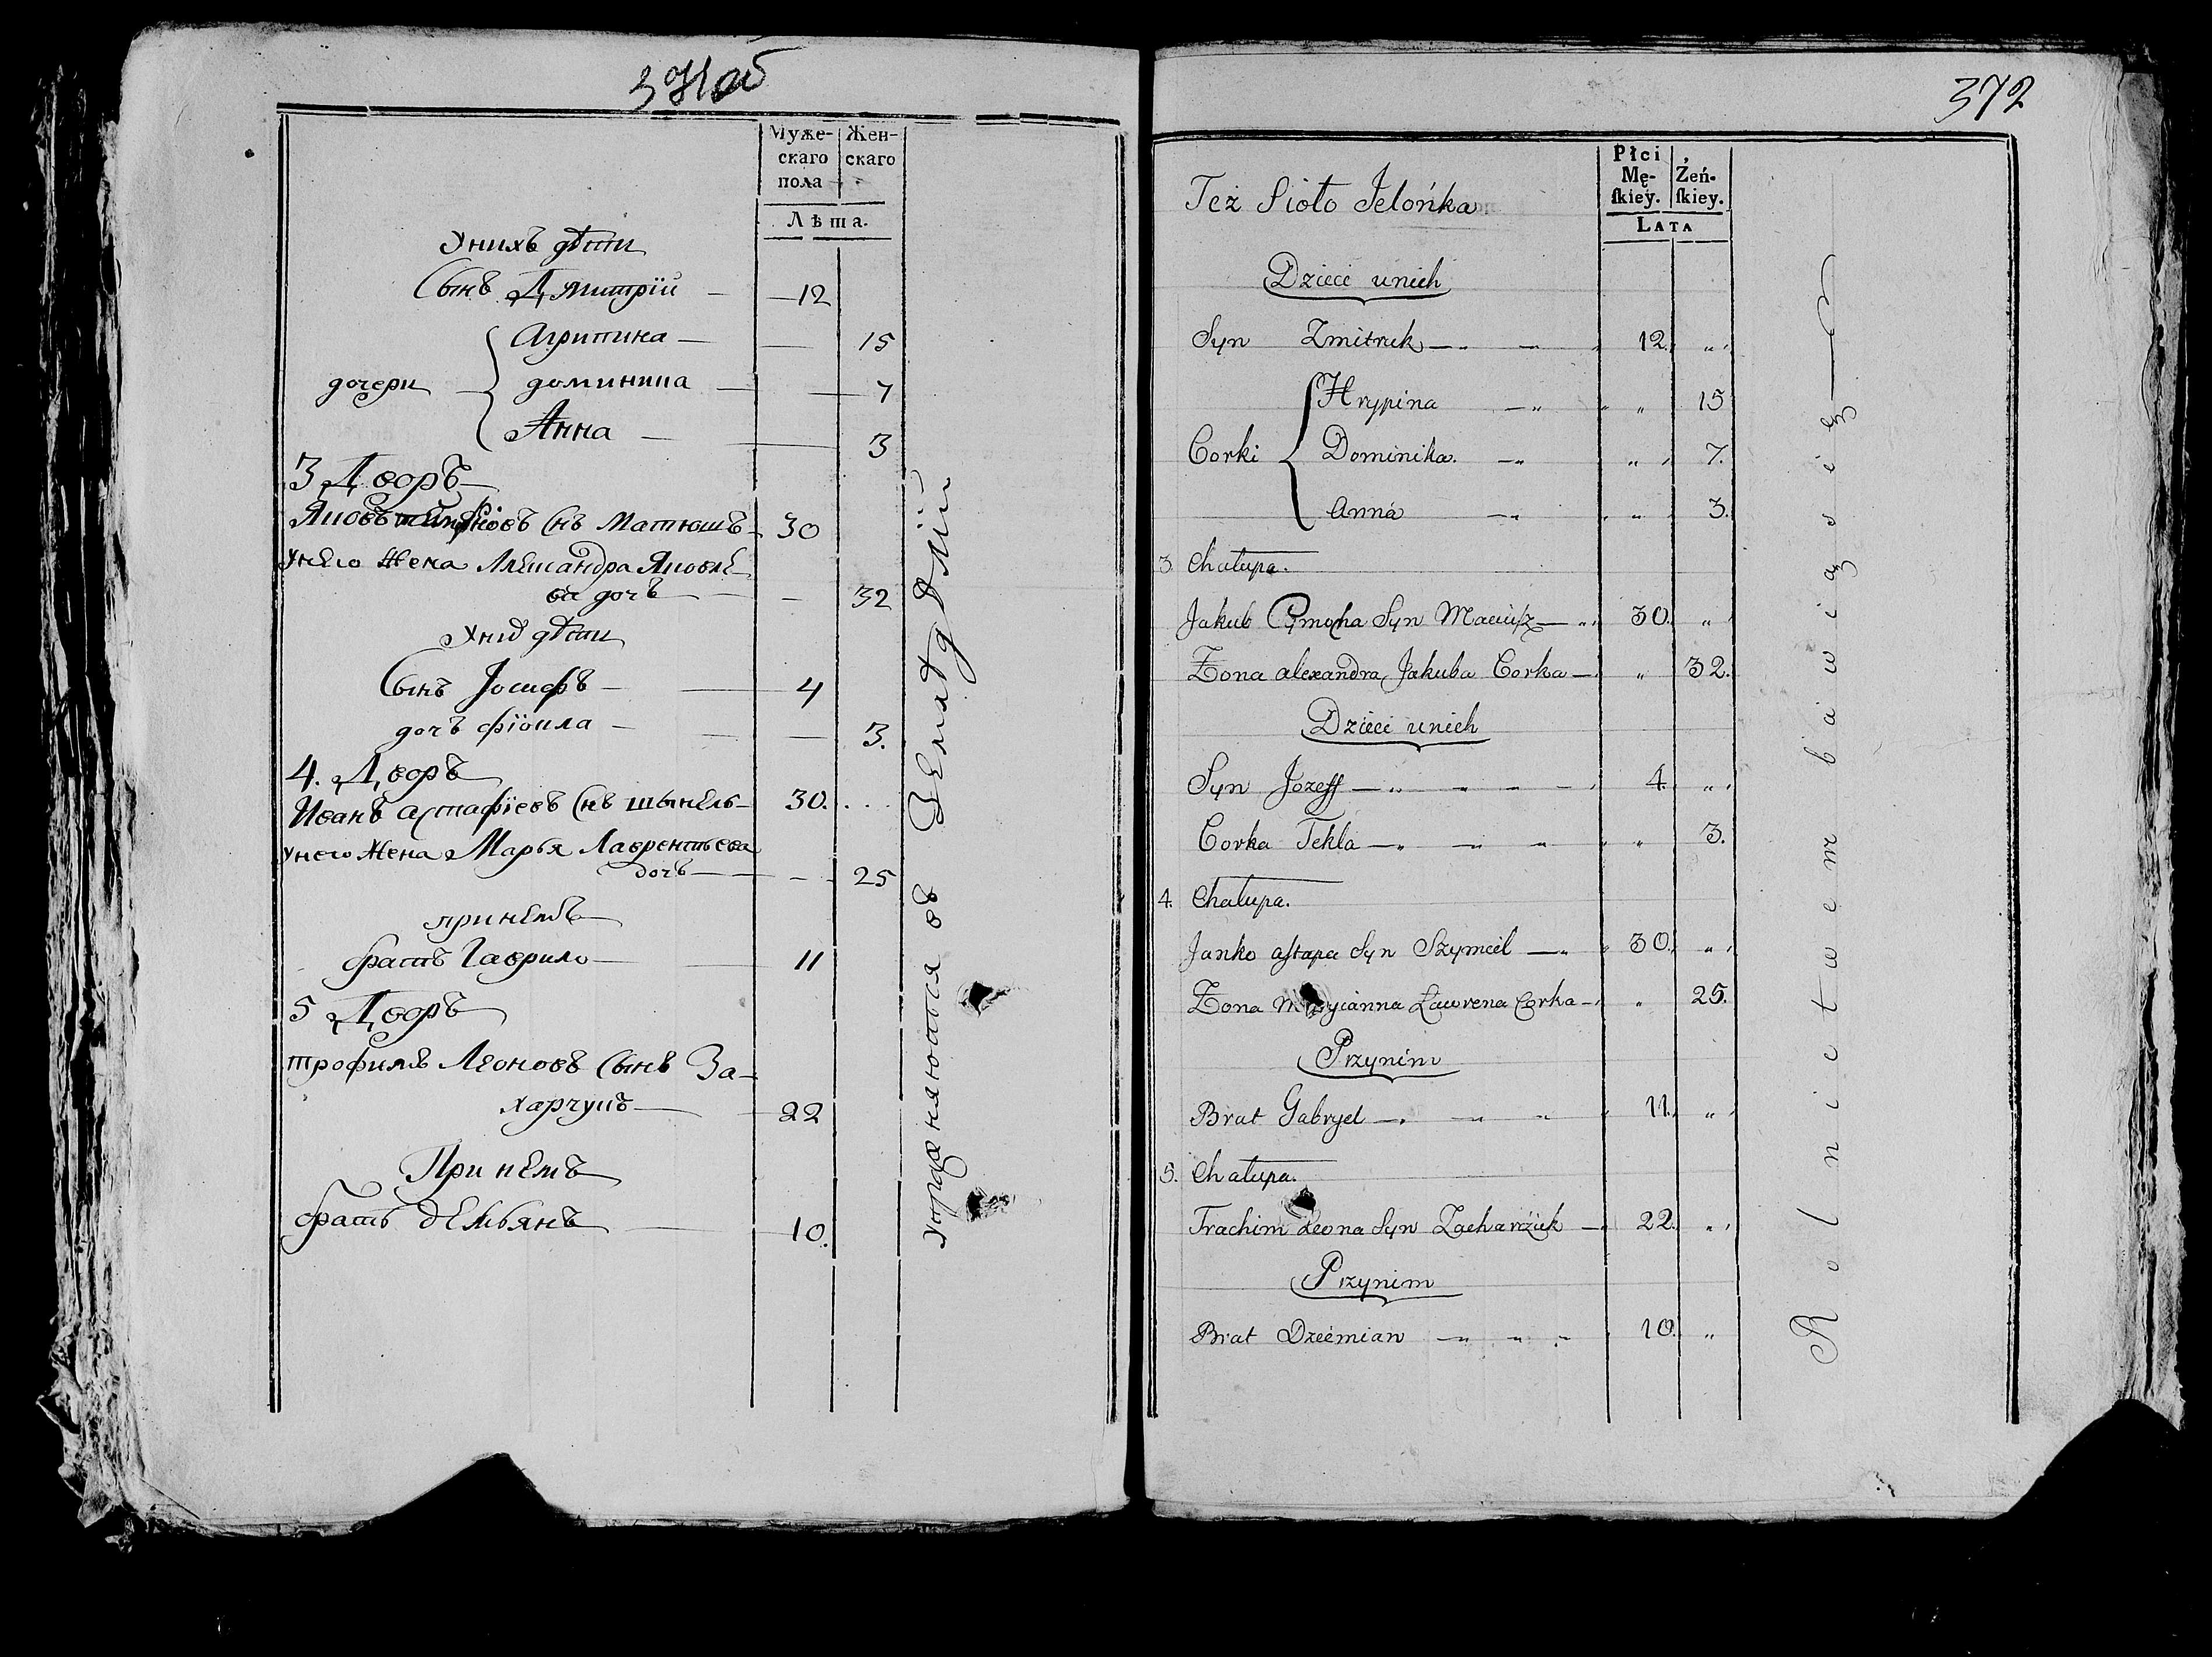 371об
Муже- Жен-
скаго скаго
пола
Лѣта.
Унихъ дѣти
Сынъ Дмитрій — 12
Агрипина — 15
дочери доминика — 7
Анна — 3
3 Дворъ
Яковъ снъ Матюшъ 30
Унего Жена Александра Яковле
ва дочъ 32
Унид дѣти
Сынъ Іосифъ — 4
дочъ фіокла — 3.
4. Дворъ
Иванъ астафіевъ Снъ шынель 30.
Унего Жена Марья Лаврентьева
дочъ 25
принемъ
братъ Гаврило 11
5 Дворъ
трофимъ Леоновъ Сынъ За-
харчукъ 22
При немъ
братъ демьянъ 10.
упражняются въ Земледѣлій
372
Też Sioło Jelońka
Płci
Mę- Żeń-
ſkiey. ſkiey.
LATA
Dzieci unich
Syn Zmitruk 12. „
Hrypina „ 15
Corki Dominika. „ 7.
Anna „ 3.
3. Chałupa.
Jakub Cymocha Syn Maciuſz 30. „
Żona alexandra Jakuba Corka „ 32.
Dzieci unich
Syn Jozeff 4. „
Corka Tekla „ 3.
4. Chałupa.
Janko aſtapa Syn Szymcel 30. „
Żona Maryianna Ławrena Corka „ 25.
Przynim
Brat Gabryel 11. „
5. Chałupa.
Trachim Leona Syn Zacharczuk 22. „
Przynim
Brat Dziemian 10. „
Rolnictwem bawiąsię